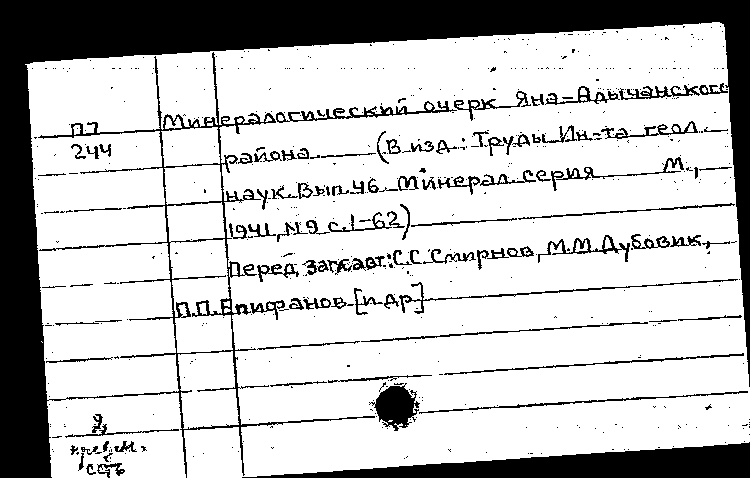 П7 Минералогический очерк Яна=Адычанского
244 района (В изд.: Труды Ин-та геол.
наук. Вып. 46 Минерал. серия М.,
1941, №9 с. 1-62)
Перед загл. авт.: С.С. Смирнов, М.М. Дубовик,
П.П. Епифанов [и др]
Я